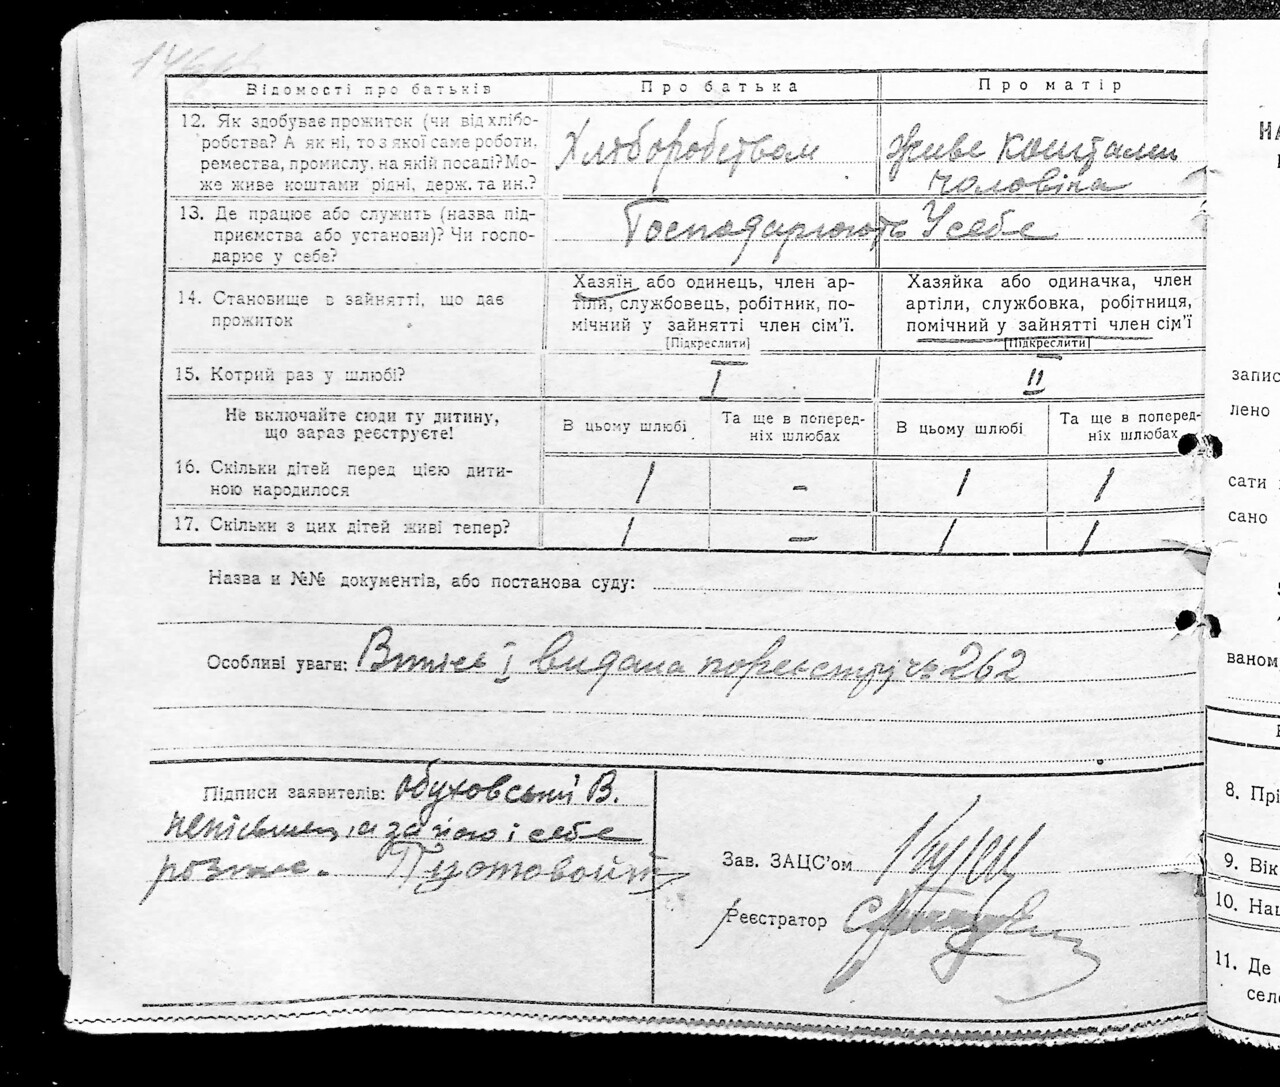 146
Відомості про батьків
Про батька
Про матір
12. Як здобуває прожиток (чи від хлібо-
робства? А як ні, то з якої саме роботи,
ремества, промислу, на якій посаді? Мо-
же живе коштами рідні, держ. та ин.?
Хліборобством
живе коштами
чоловіка
13. Де працює або служить (назва під-
приємства або установи)? Чи госпо-
дарює у себе?
Господарюють У себе
14. Становище в зайнятті, що дає
прожиток
Хазяїн або одинець, член ар-
тіли, службовець, робітник, по-
мічний у зайнятті член сім’ї.
[Підкреслити]
Хазяйка або одиначка, член
артіли, службовка, робітниця,
помічний у зайнятті член сім’ї
[Підкреслити]
15. Котрий раз у шлюбі?
I
II
Не включайте сюди ту дитину,
що зараз реєструєте!
В цьому шлюбі
Та ще в поперед-
ніх шлюбах
В цьому шлюбі
Та ще в поперед-
ніх шлюбах
16. Скільки дітей перед цією дити-
ною народилося
1
-
1
1
17. Скільки з цих дітей живі тепер?
1
-
1
1
Назва и №№ документів, або постанова суду:
Особливі уваги: видана по реєстру 262
Підписи заявителів: Обуховський В.
і себе
Пустовойт
Зав. ЗАЦС’ом
Реєстратор
запис
лено
сати
сано
ваном
8. Прі
9. Вік
10. Нац
11. Де
село